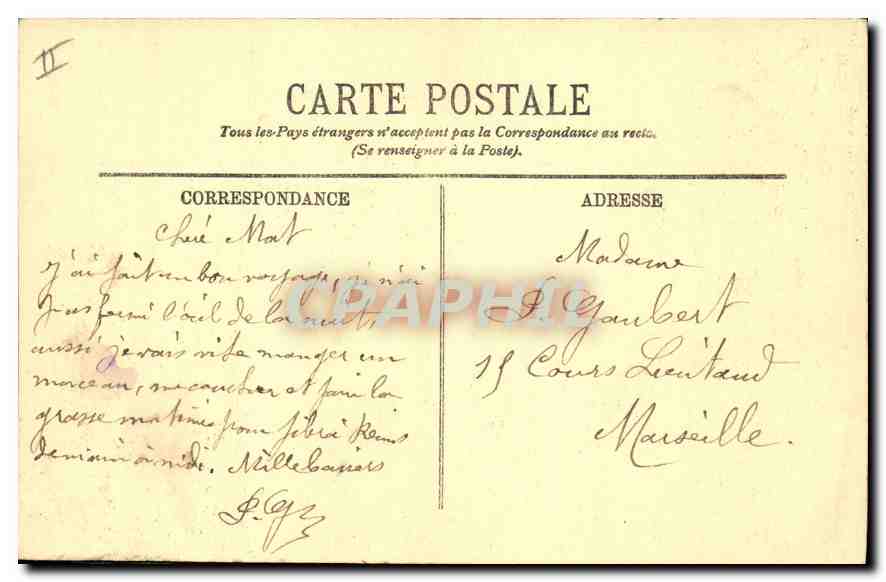 II
CARTE POSTALE
Tous les Pays étrangers n'acceptent pas la Correspondance au recto.
(Se renseigner à la Poste).
CORRESPONDANCE
Chère Mat
J'ai fait un bon voyage, je n'ai
pas fermé l'œil de la nuit,
aussi je vais vite manger un
morceau, me coucher et faire la
grasse matinée pour filer à Reims
demain à midi. Mille baisers
P. G
ADRESSE
Madame
P. Gaubert
15 Cours Lieutaud
Marseille.
CPAPHIL